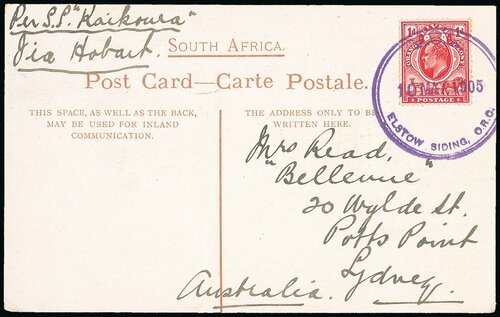 Per S.S. "Kaikoura"
Via Hobart.
SOUTH AFRICA.
Post Card—Carte Postale.
THIS SPACE, AS WELL AS THE BACK,
MAY BE USED FOR INLAND
COMMUNICATION.
THE ADDRESS ONLY TO BE
WRITTEN HERE.
1d 1d
POSTAGE
10 MAY 1905
ELSTOW SIDING, O.R.C.
Mrs Read,
"Bellevue"
20 Wylde St.
Potts Point
Sydney
Australia.